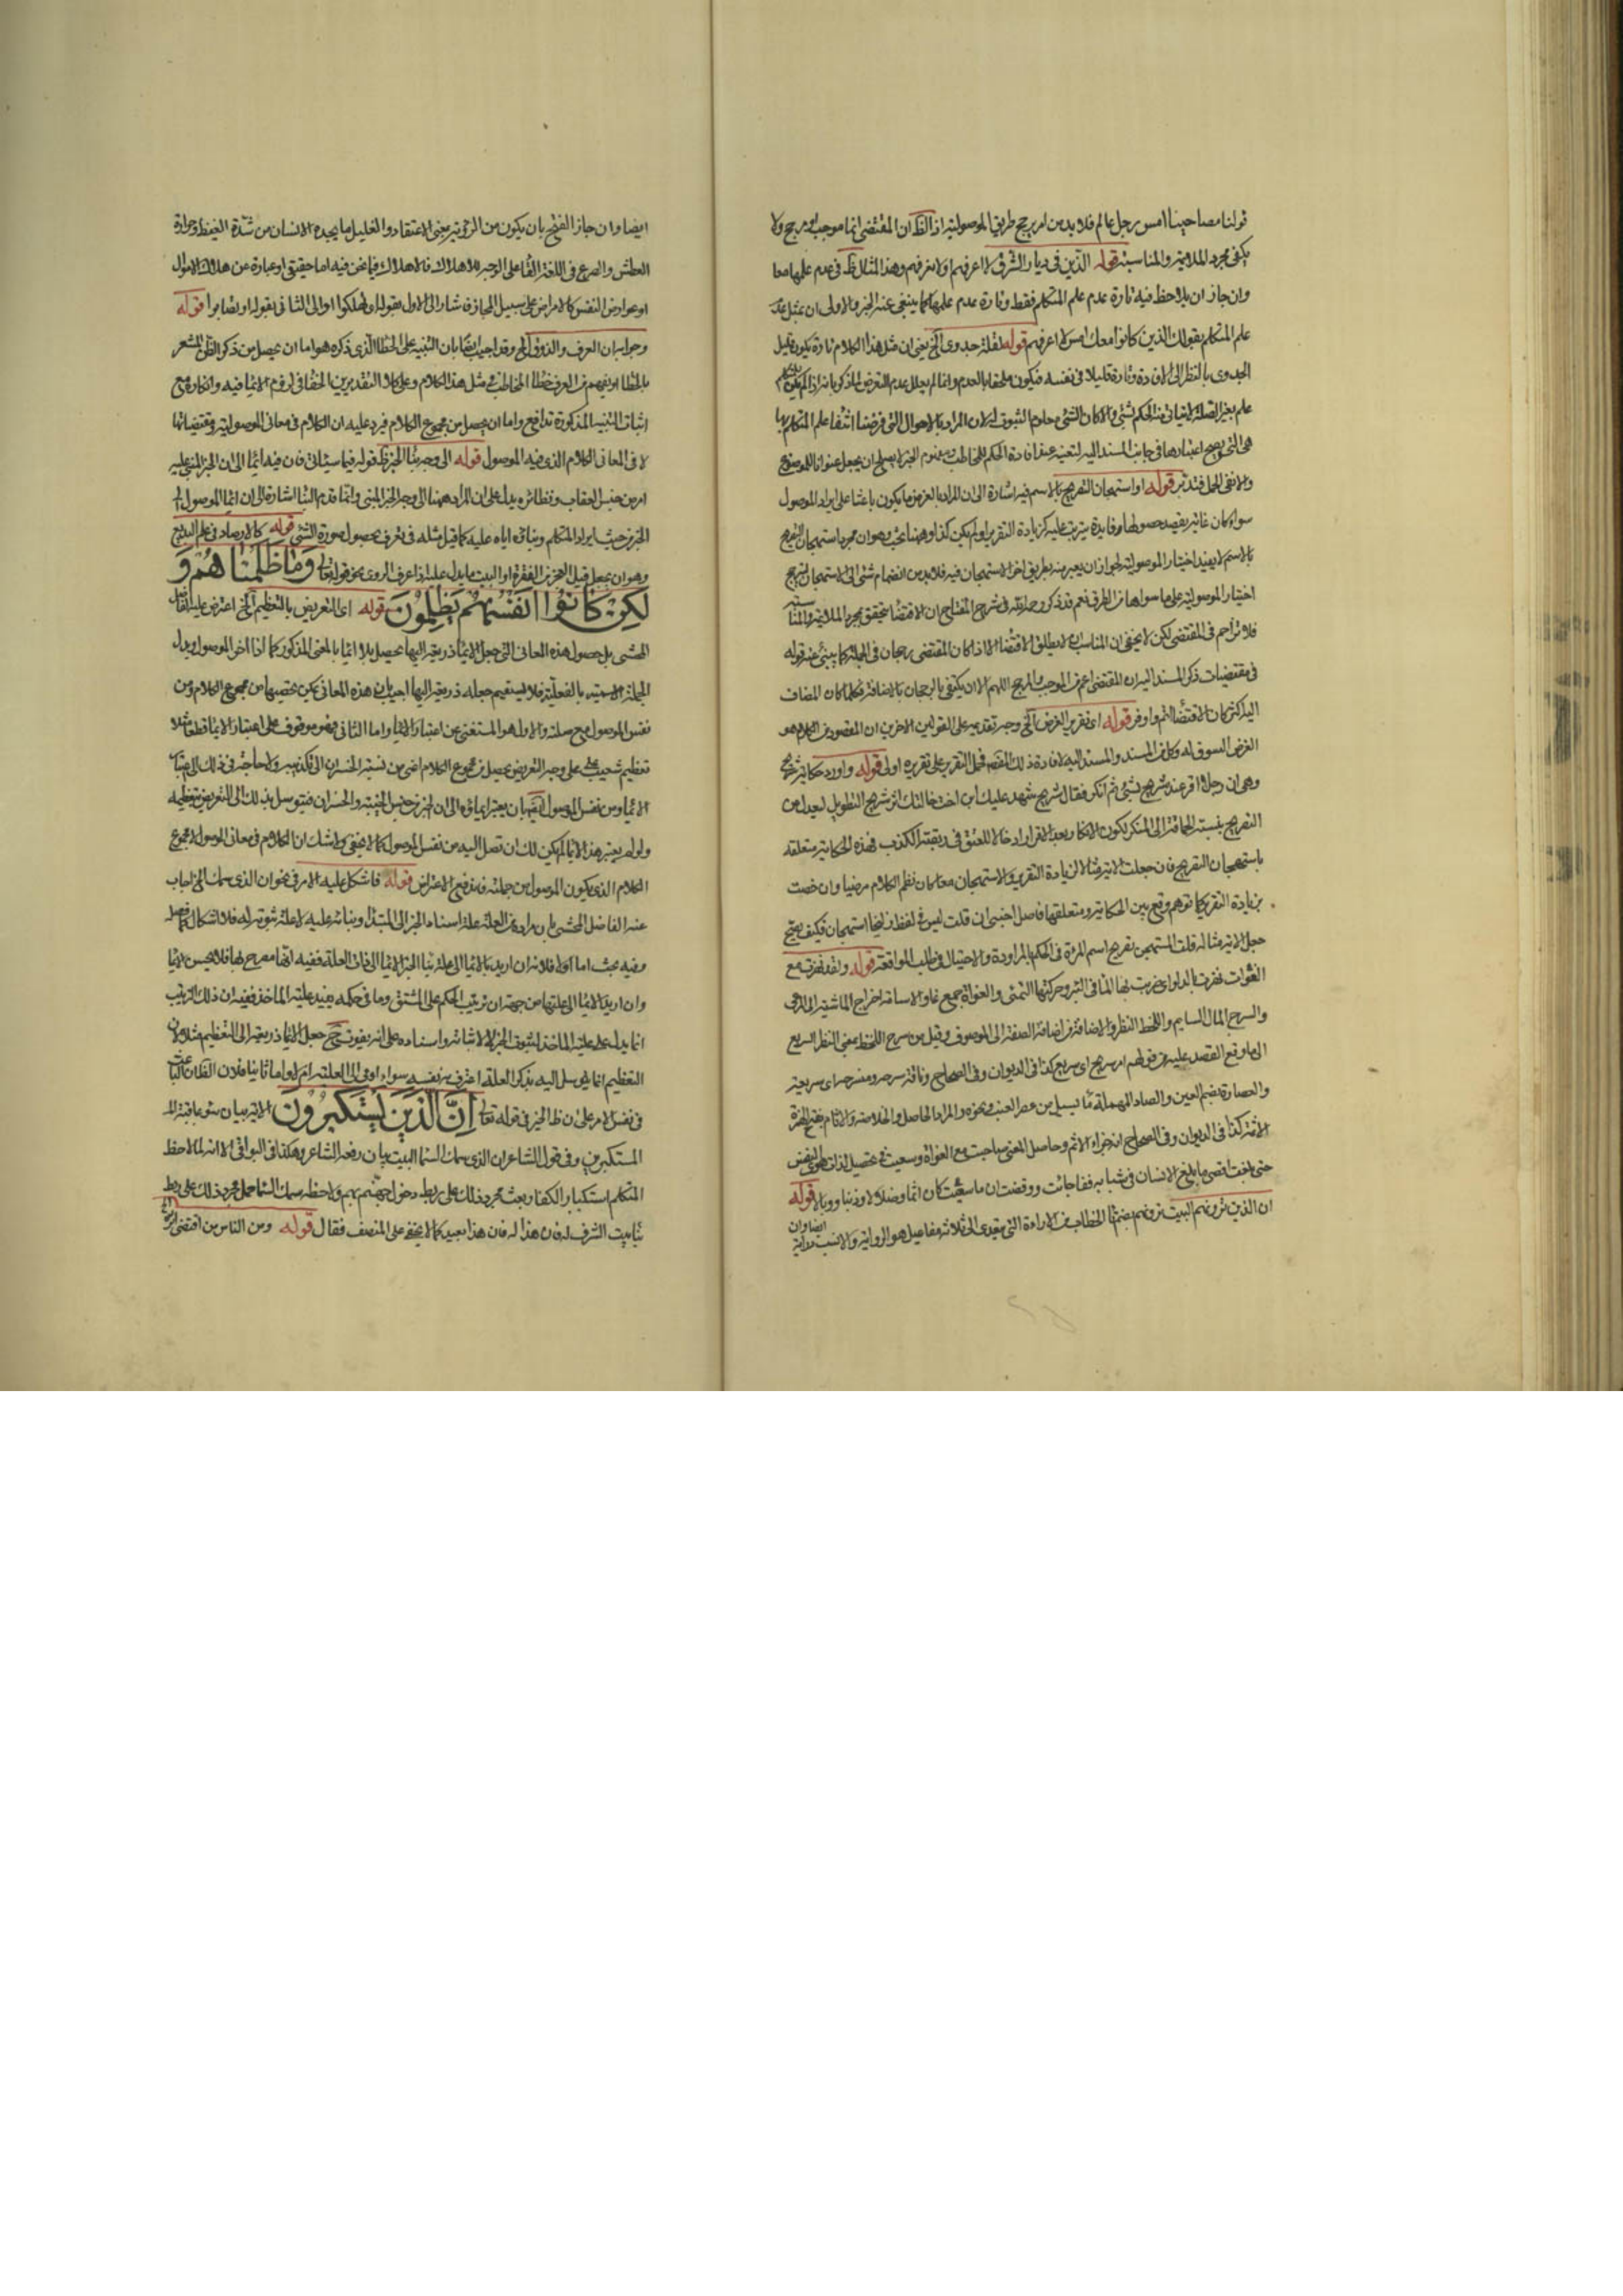 قولنا مصاحبنا امس رجل عالم فلا بد من امر يرجح طريق الموصولية اذ الظ ان المقتضى انما موجب او مرجح ولا
يكفى مجرد الملايمة والمناسبة قوله الذين فى ديار الشرق لا اعرفهم او لا نعرفهم وهذا المثال ظ فى عدم علمها معا
وان جاز ان يلاحظ فيه تارة عدم علم المتكلم فقط وتارة عدم علمها كما ينبغى عنه الخبر والاولى ان يمثل
علم المتكلم بقولك الذين كانوا معك امس لا اعرفهم قوله لقلة جدوى الخ يعنى ان مثل هذا الكلام تارة يكون قليل
الجدوى بالنظر الى الافادة وتارة قليلا فى نفسه فيكون ملحقا بالعدم وانما لم يعلل عدم التعرض
علم بغير الصلة الحكم بشئ والا كان الشئ معلوم الثبوت له لان المراد بالاحوال التى فرضنا انتفاء علم المتكلم بها
هى التى يصح اعتبارها فى جانب المسند اليه افادة الحكم للمخاطب
ولا نفى الجمل فتدبر قوله او استهجان التصريح بالاسم فيه اشارة الى ان المراد بالغرض ما يكون باعثا على ايراد الموصول
سواء كان غاية يقصد حصولها او فايدة يترتب عليه كزيادة التقرير او لم يكن كذا وههنا بحث وهو ان مجرد استهجان التصريح
بالاسم لا يفيد اختيار الموصولية لجواز ان يعبر عنه بطريق اخر لا استهجان فيه فلا بد من انضمام شئ الى الاستهجان ليرجح
اختيار الموصولية على ما سواها من الطرق نعم قد ذكر رحمه الله فى شرح المفتاح ان الاقتضاء يتحقق بمجرد الملايمة والمناسبة
فلا تزاحم فى المقتضى لكن لا يخفى ان المناسبة لا يطلق الاقتضا الا اذا كان المقتضى رجحان فى الجملة كما ينبئ عنه قوله
فى مقتضيات ذكر المسند اليه ان المقتضى اعم من الموجب والمرجح اللهم الا ان يكتفى بالرجحان بالاضافة فكلما كان المضاف
اليه اكثر كان الاقتضا اتم واوفر قوله اى تقرير الغرض الخ وجه تقديمه على القولين الاخرين ان المقصود من الكلام هو
الغرض المسوق له وكل من المسند والمسند اليه لافادة ذلك المقصد فحمل التقرير على تقريره اولى قوله واورد حكاية شريح
وهى ان رجلا اقر عند شريح بشئ ثم انكر فقال شريح شهد عليك ابن اخت خالتك اثر شريح التطويل ليعدل عن
التصريح بنسبة الحماقة الى المنكر لكون الانكار بعد الاقرار ادخالا للعنق فى ربقة الكذب فهذه الحكاية متعلقة
باستهجان التصريح فان جعلت الاية مثالا لزيادة التقرير والاستهجان معا كان نظم الكلام مرضيا وان خصت
بزيادة التقرير كما توهم وقع بين الحكاية ومتعلقها فاصل اجنبى ان قلت ليس فى لفظ زليخا استهجان فكيف يصح
جعل الاية مثالا له قلت المستهجن تصريح اسم المرأة فى الحكم بالمراودة والاحتيال فى طلب المواقعة قوله ولقد نهزت مع
الغواة نهزت بالدلو اى ضربت بها الماء فى البئر وحركتها لتمتلئ والغواة جمع غاو والاسامة اخراج الماشية الى المرعى
والسرح المال السايم واللحظ النظر والاضافة من اضافة الصفة الى الموصوف وقيل من سرح اللحظ بمعنى النظر السريع
الى ما وقع القصد عليه من قولهم امر سريح اى سريع كذا فى الديوان وفى الصحاح وناقة سرحة ومنسرحة اى سريعة
والعصارة بضم العين والصاد المهملة ما يسيل من عصر العنب ونحوه والمراد الحاصل والخلاصة والاثام بفتح الهمزة
الاثم كذا فى الديوان وفى الصحاح انه جزاء الاثم وحاصل المعنى صاحبت مع الغواة وسعيت فى تحصيل لذات هوى النفس
حتى بلغت اقصى ما يبلغ الانسان فى شبابه ففاجأت ووقفت ان ما سعيت كان اثما وضلالا وذنبا ووبالا قوله
ان الذين ترونهم البيت ترونهم بضم تاء الخطاب من الاراءة التى يتعدى الى ثلاثة مفاعيل هو الرواية والانسب دراية
ايضا وان
ايضا وان جاز الفتح بان يكون من الرؤية بمعنى الاعتقاد والغليل ما يجده الانسان من شدة الغيظ وحرارة
العطش والصرع فى اللغة الالقاء على الوجه للاهلاك فالاهلاك فيما نحن فيه اما حقيقى او عبارة عن هلاك الاموال
او عوارض النفس كالامراض على سبيل المجاز فاشار الى الاول بقوله ان تهلكوا او الى الثانى بقوله او تصابوا قوله
وجوابه ان العرف والذوق الخ وقد اجيب ايضا بان التنبيه على الخطا الذى ذكره هو اما ان يحصل من ذكر الظن المشعر
بالخطا او يفهم من العرف خطا المخاطب فى مثل هذا الكلام وعلى كلا التقديرين الخفا فى لزوم الايما فيه وانكاره مع
اثبات التنبيه المذكورة تدافع واما ان يحصل من مجموع الكلام فيرد عليه ان الكلام فى معانى الموصولية ومقتضياتها
لا فى المعانى الكلام الذى فيه الموصول قوله الى وجه بناء الخبر ظ قوله فيما سيأتى فان فيه ايماء الى ان الخبر المبنى عليه
امر من جنس العقاب ونظائره يدل على ان المراد ههنا الى وجه الخبر المبنى وانما قدم البناء اشارة الى ان ايماء الموصول الى
الخبر من حيث ايراد المتكلم وبنائه اياه عليه كما قيل مثله فى تعرف بحصول صورة الشئ قوله كالارصاد فى علم البديع
وهو ان يجعل قبل العجز من الفقرة او البيت ما يدل عليه اذا عرف الروى نحو قوله تعالى وَمَا ظَلَمْنَاهُمْ وَ
لَكِنْ كَانُوا أَنْفُسَهُمْ يَظْلِمُونَ قوله اى التعريض بالتعظيم الخ اعترض عليه الفاضل
المحشى بل حصول هذه المعانى التى جعل الايماء ذريعة اليها يحصل بلا ايماء بالمعنى المذكور كما اذا اخر الموصول وبدل
الجملة الاسمية بالفعلية فلا يستقيم جعله ذريعة اليها اجيب بان هذه المعانى يمكن تحصيلها من مجموع الكلام ومن
نفس الموصول مع صلته والاول هو المستغنى عن اعتبار الايماء واما الثانى فهو موقوف على اعتبار الايماء قطعا مثلا
تعظيم شعيب على وجه التعريض يحصل من مجموع الكلام اعنى من نسبة الخسران الى مكذبيه ولا حاجة فى ذلك الى اعتبار
الايماء ومن نفس الموصول ايضا بان يعتبر ايماؤه الى ان الخبر من جنس الخيبة والخسران فيتوسل بذلك الى التعريض بتعظيمه
ولو لم يعتبر هذا الايماء لم يكن لك ان تصل اليه من نفس الموصول كما لا يخفى ولا شك ان الكلام فى معانى الموصول لا مجموع
الكلام الذى يكون الموصول من جملته فاندفع الاعتراض قوله فاشكل عليه الامر فى نحو ان الذى سمك الخ اجاب
عنه الفاضل المحشى بان مراده من العلة علة اسناد الخبر الى المبتدأ وبنائه عليه لا علة ثبوته له فلا اشكال كما فصله
وفيه بحث اما اولا فلانه ان اريد بالايماء الى علة بناء الخبر الايماء الى ذات العلة ففيه انها مصرح بها فلا يحسن الايماء
وان اريد الايماء الى عليتها من جهة ان ترتيب الحكم على المشتق وما فى حكمه يفيد علية المأخذ ففيه ان ذلك الترتيب
انما يدل على علية المأخذ لثبوت الخبر لا لاثباته واسناده على انه يفوت ح جعل الايماء ذريعة الى التعظيم مثلا لان
التعظيم انما يتوسل اليه بذكر العلة اعترف به نفسه سواء اومى الى العلية ام لا واما ثانيا فلان الظ ان
فى نفس الامر على ان ظ الخبر فى قوله تعالى إِنَّ الَّذِينَ يَسْتَكْبِرُونَ الاية بيان سوء عاقبة
المستكبرين وفى قول الشاعر ان الذى سمك السما البيت بيان رفعة الشاعر وهكذا فى البواقى الا انه لما لاحظ
المتكلم استكبار الكفار بعث مجرد ذلك على ربط دخول جهنم بهم ولاحظ سمك السما حمل مجرد ذلك على ربط
بناء بيت الشرف له فان هذا له فان هذا بعيد كما لا يخفى على المنصف فقال قوله ومن الناس من اقتفى